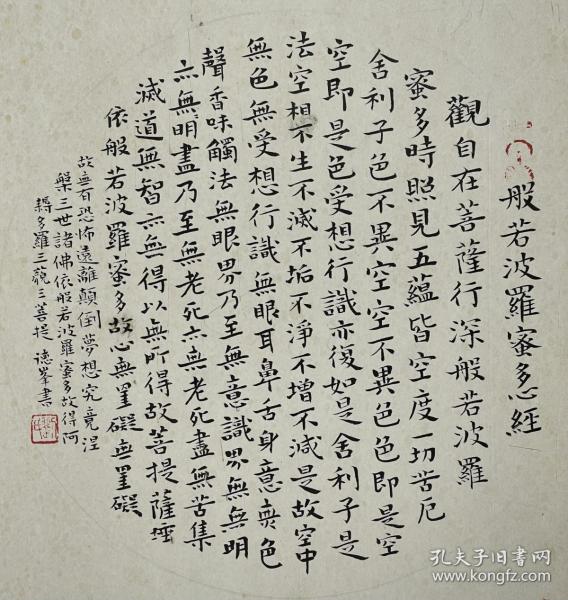 般若波羅蜜多心經
觀自在菩薩行深般若波羅
蜜多時照見五蘊皆空度一切苦厄
舍利子色不異空空不異色色即是空
空即是色受想行識亦復如是舍利子是
法空相不生不滅不垢不淨不增不減是故空中
無色無受想行識無眼耳鼻舌身意無色
聲香味觸法無眼界乃至無意識界無無明
亦無明盡乃至無老死亦無老死盡無苦集
滅道無智亦無得以無所得故菩提薩埵
依般若波羅蜜多故心無罣礙無罣礙
故無有恐怖遠離顛倒夢想究竟涅
槃三世諸佛依般若波羅蜜多故得阿
耨多羅三藐三菩提 德峯書
孔夫子旧书网
www.kongfz.com